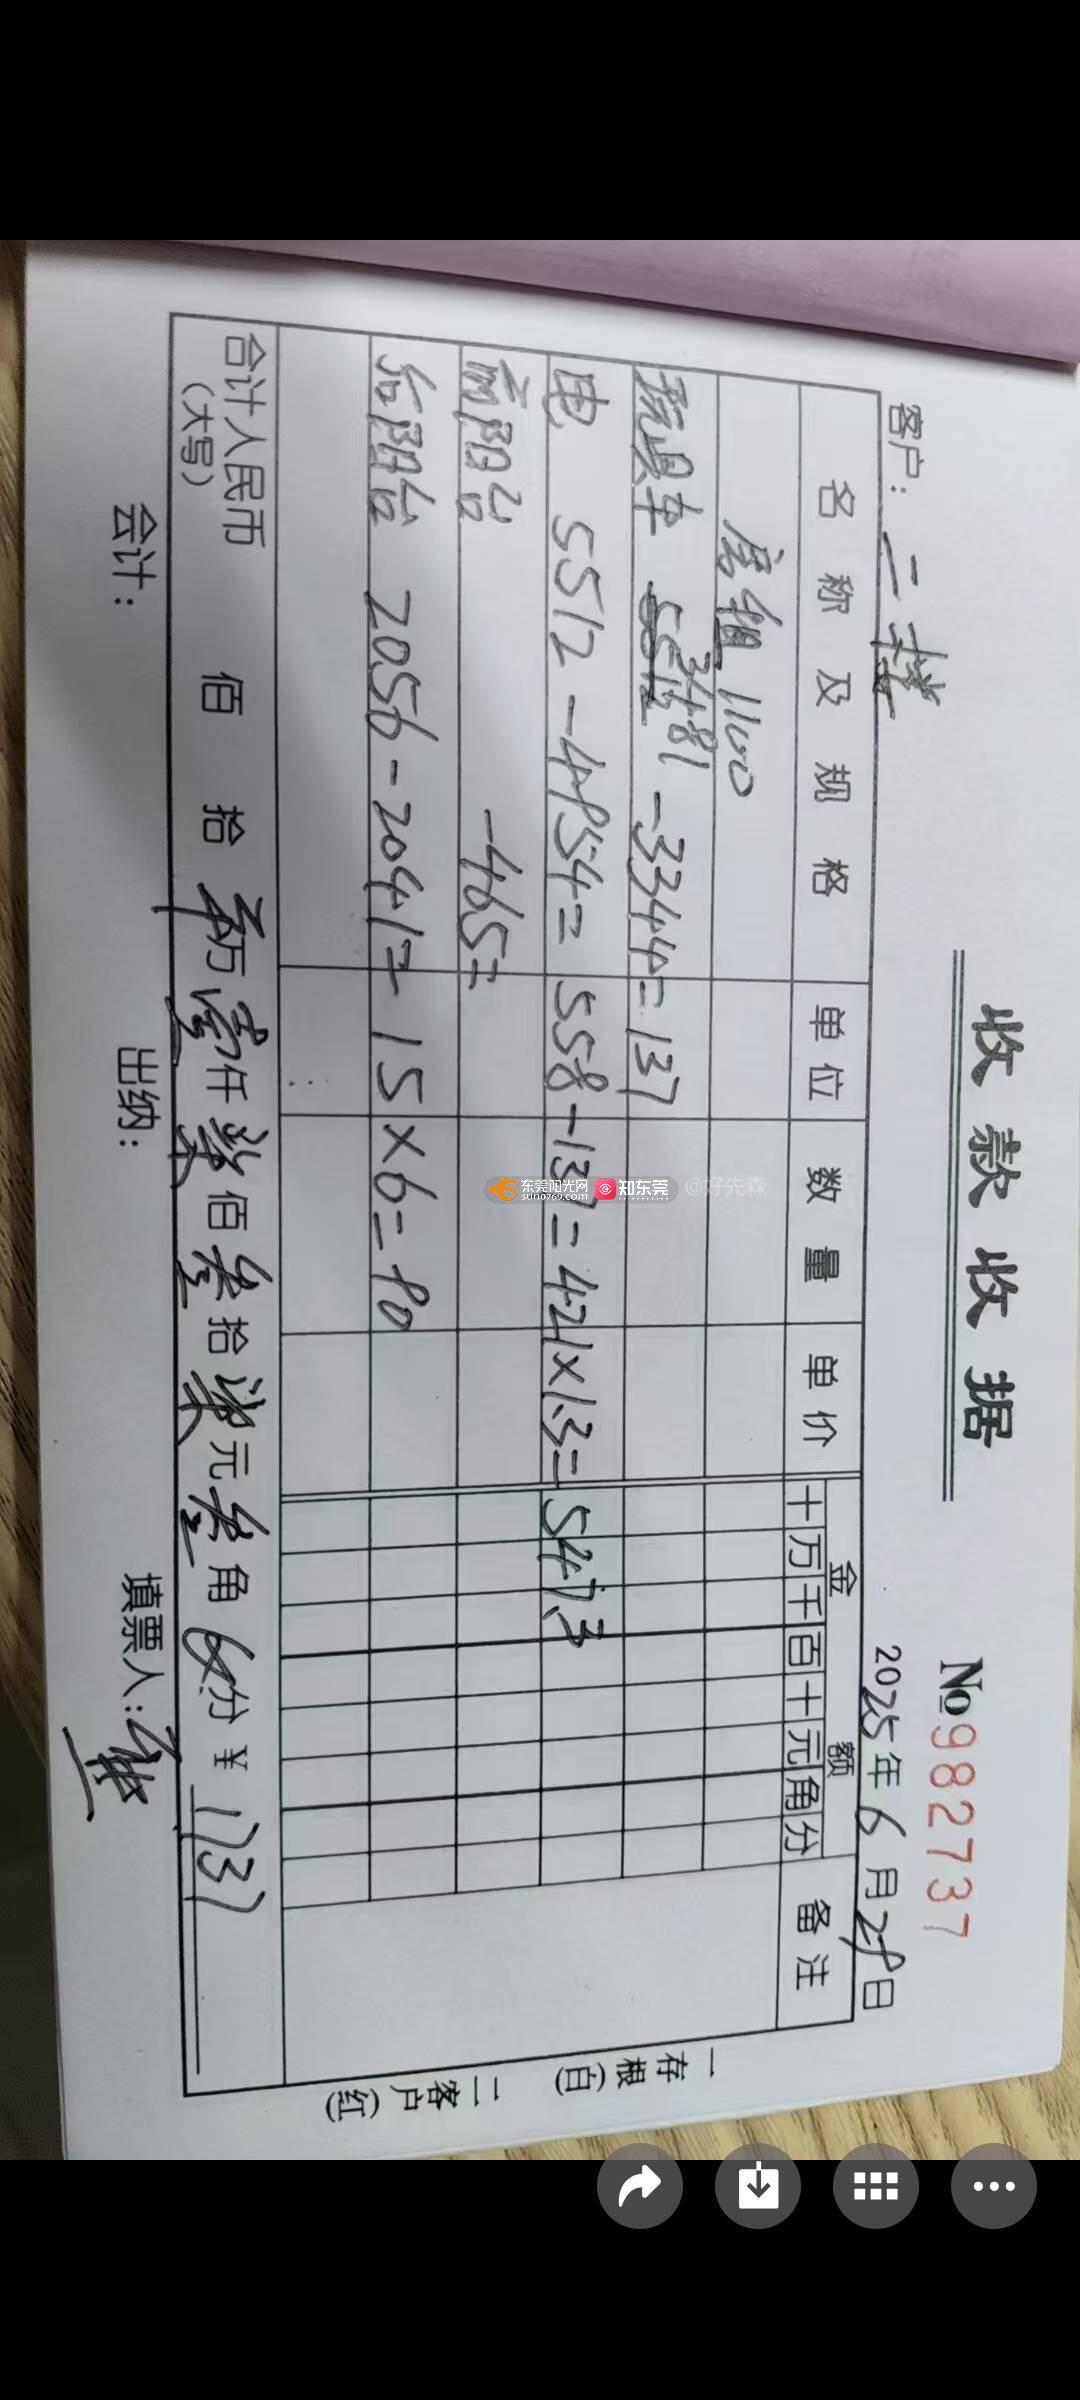 收款收据
№ 9827737
客户: 二楼
2025年6月29日
名称及规格 单位 数量 单价 金额 备注
十万千百十元角分
房租 1100
玩具车 5512 3481 -3344=137
电 5512-4954=558-137=421×1.3=547.3
前阳台 -465=
后阳台 2056-2041=15×6=90
合计人民币(大写) 佰 拾 万 壹仟柒佰叁拾柒元叁角 分 ¥ 1737
会计: 出纳: 填票人:
一存根(白) 二客户(红)
东莞阳光网 sun0769.com 知东莞 @好先森